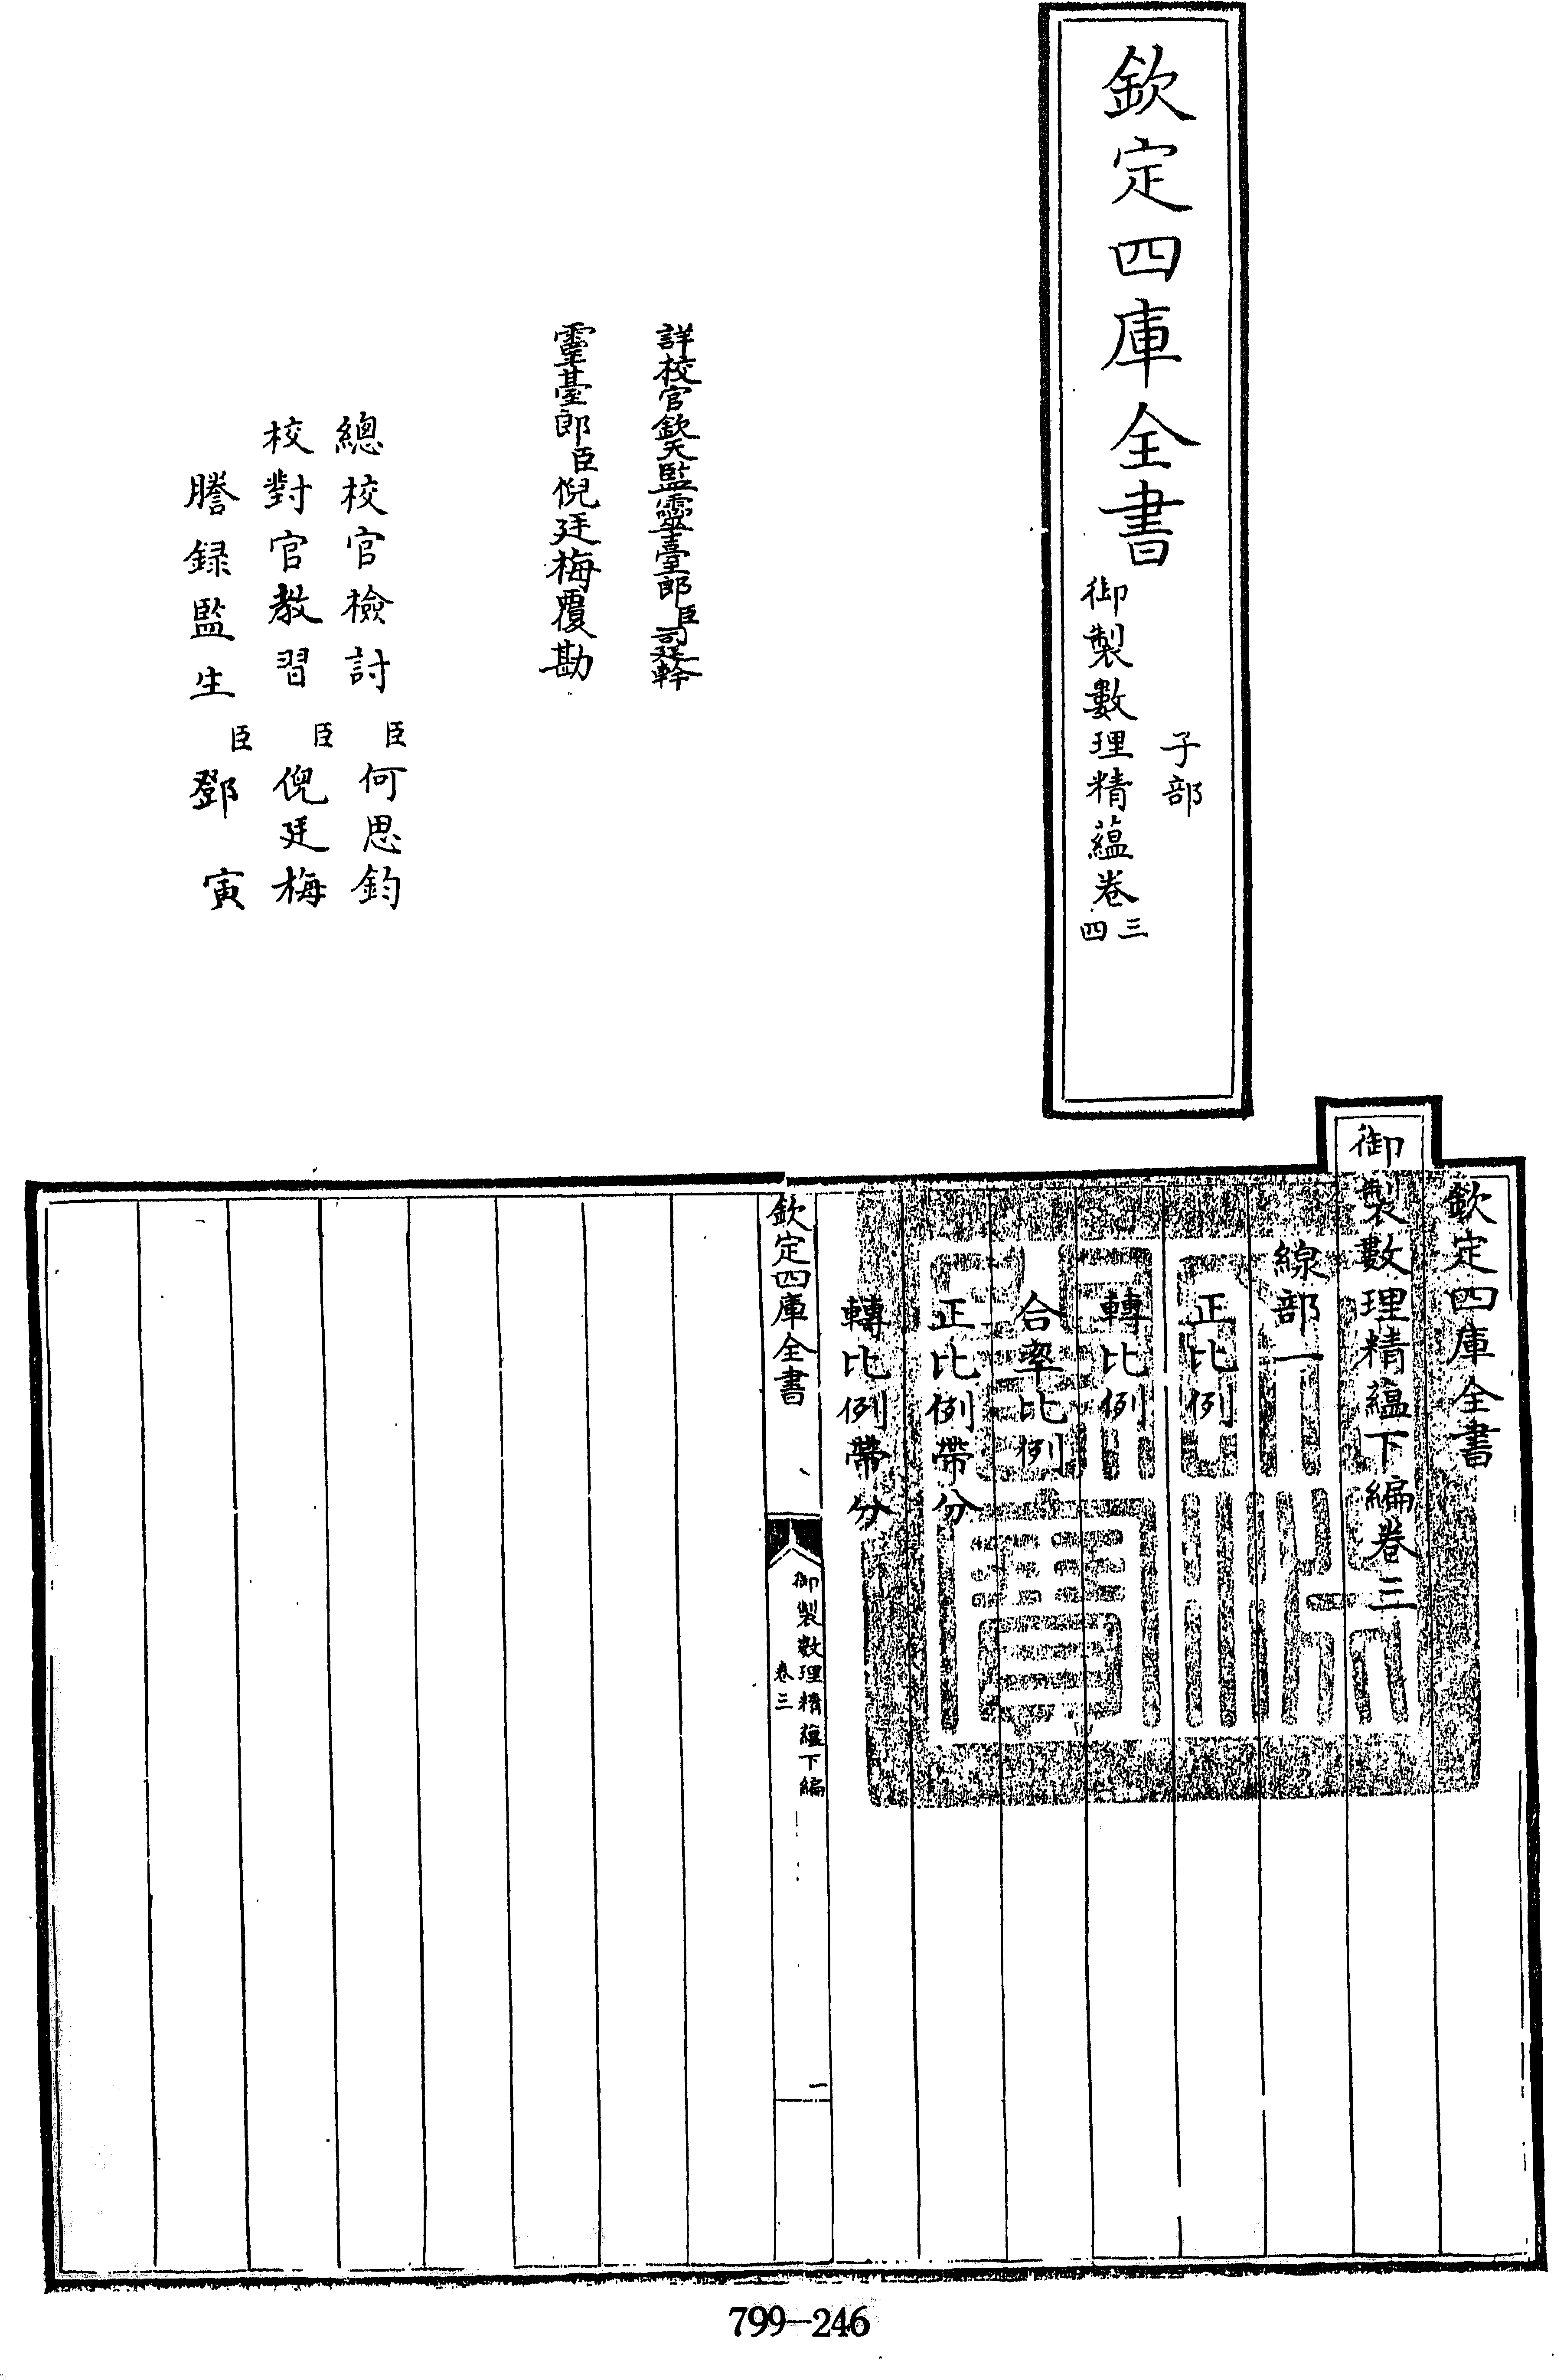 欽定四庫全書
子部
御製數理精蘊卷三四
詳校官欽天監靈臺郎臣司廷幹
靈臺郎臣倪廷梅覆勘
總校官檢討臣何思鈞
校對官教習臣倪廷梅
謄録監生臣鄧寅
欽定四庫全書
御製數理精藴下編卷三
線部一
正比例
轉比例
合率比例
正比例帶分
轉比例帶分
欽定四庫全書
御製數理精藴下編
卷三
一
799—246